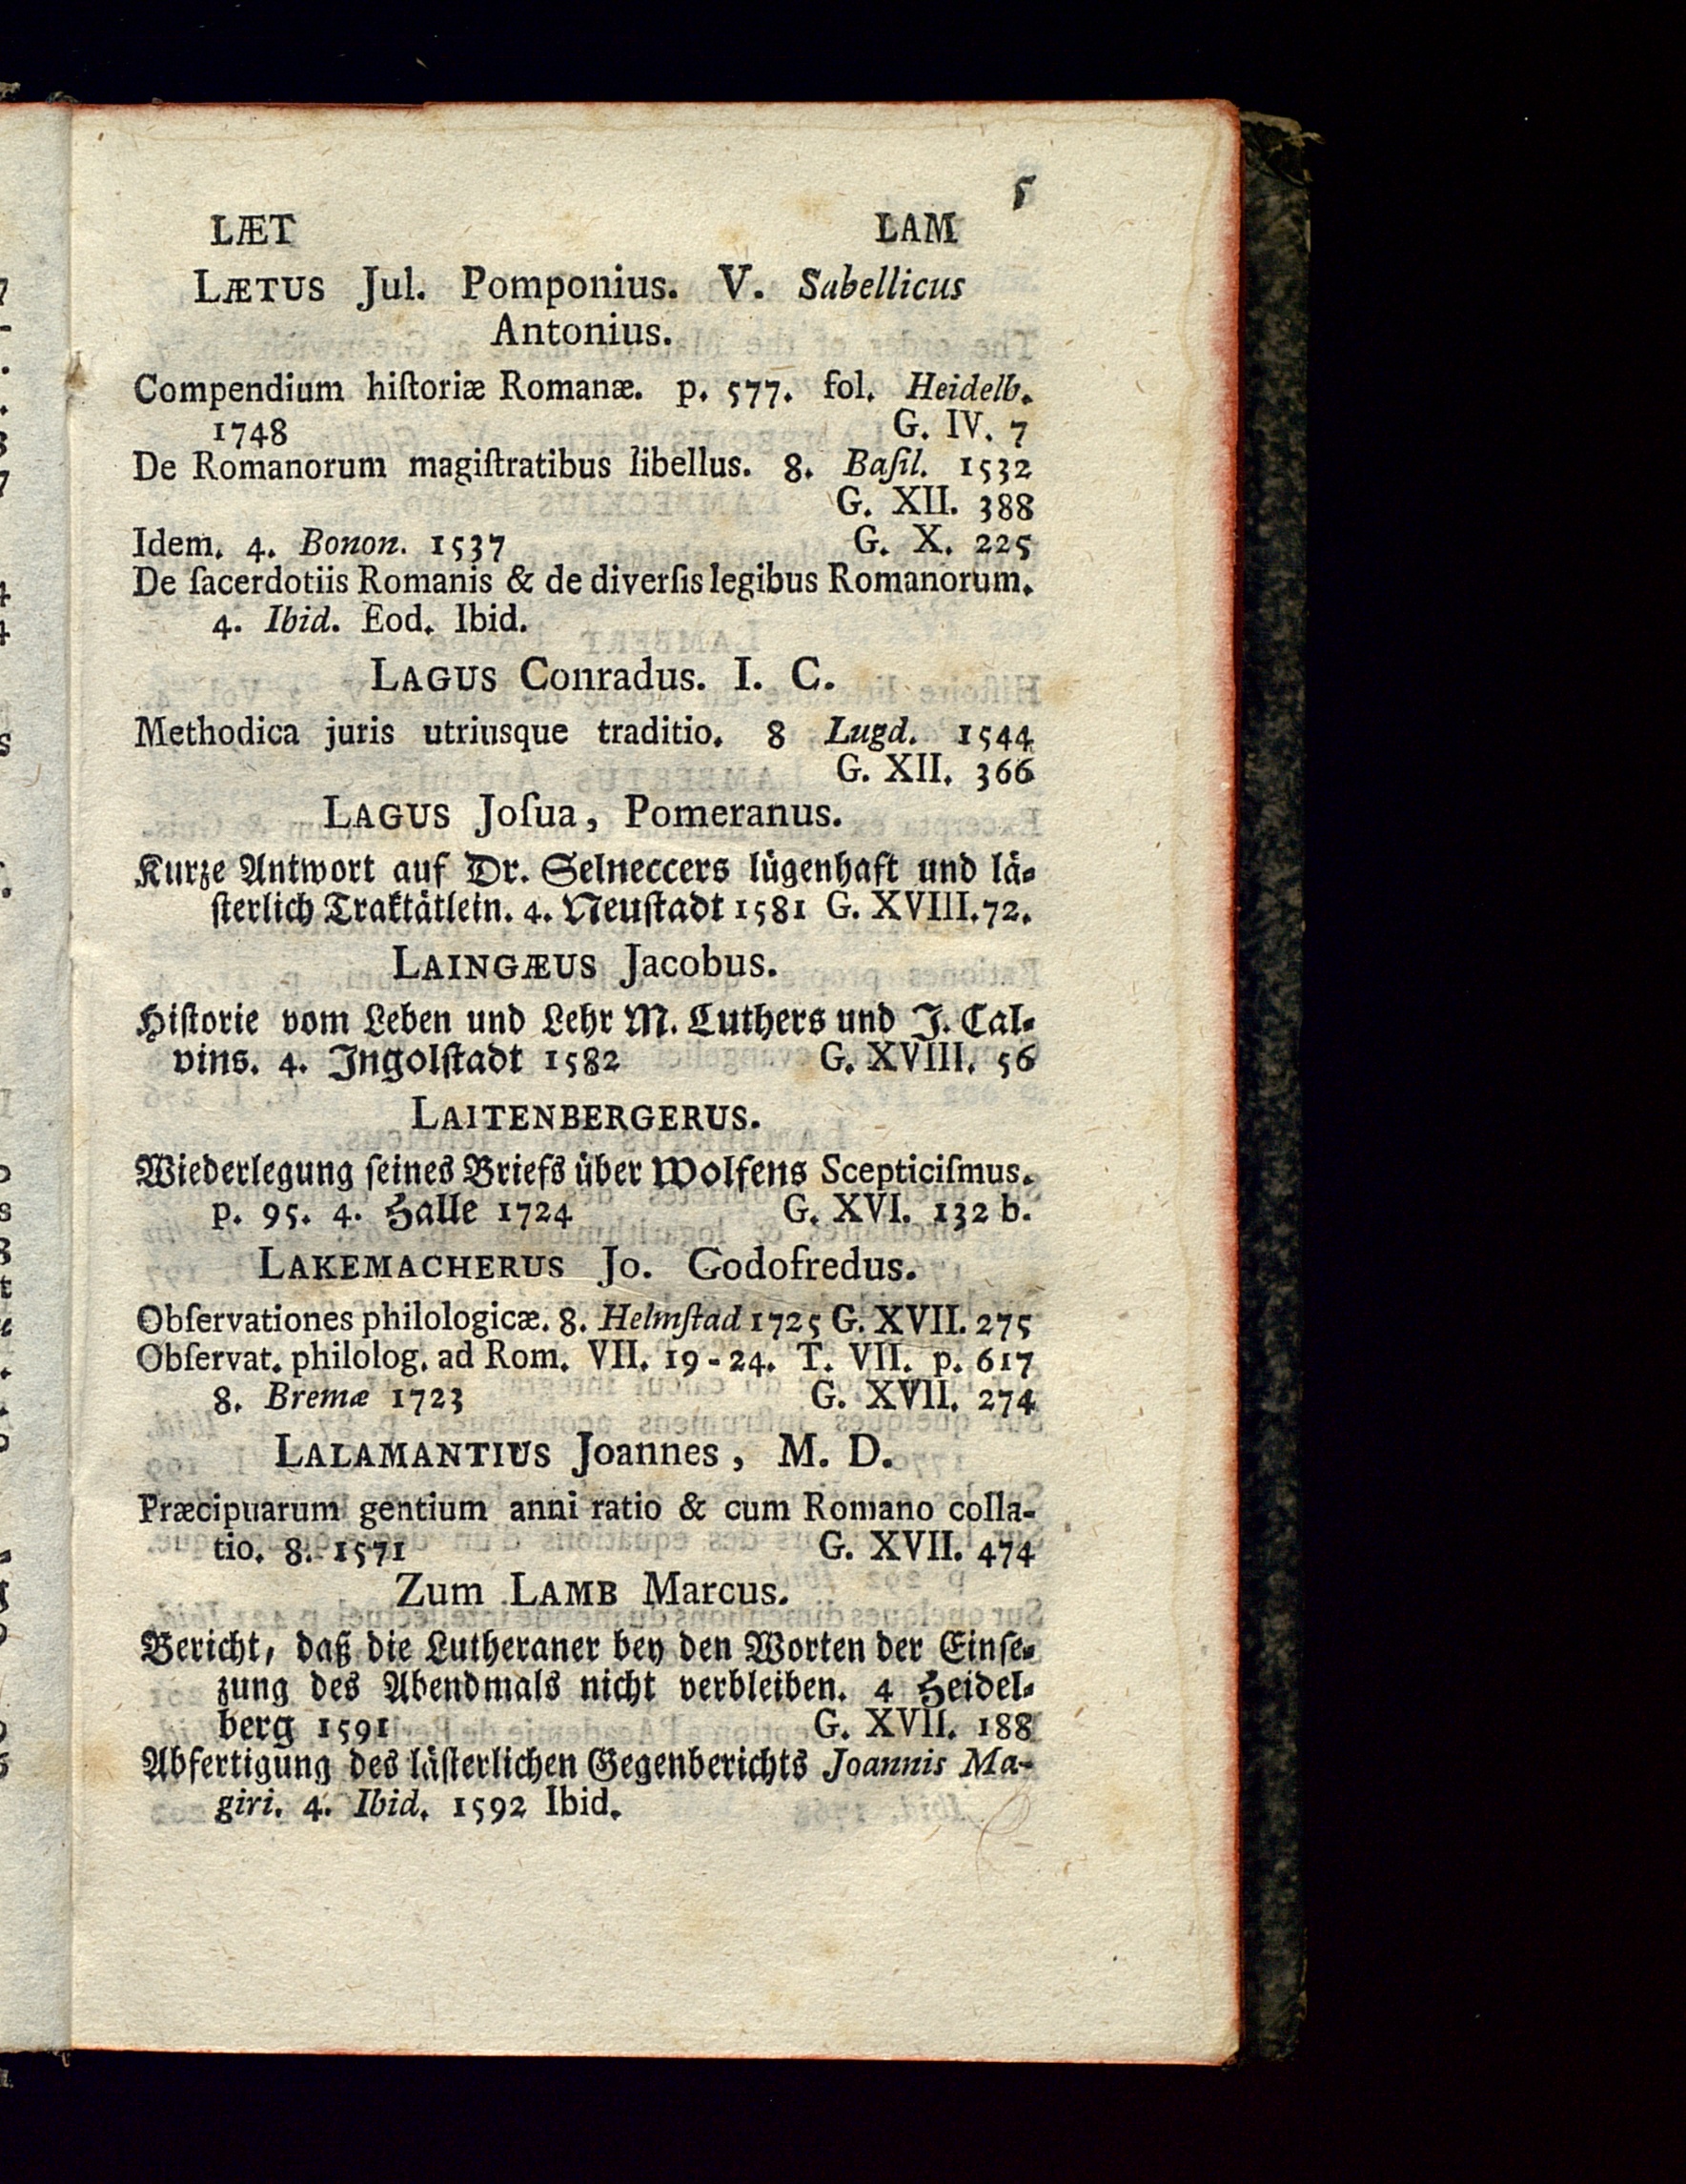 5
LÆT LAM
LÆTUS Jul. Pomponius. V. Sabellicus
Antonius.
Compendium hiſtoriæ Romanæ. p. 577. fol. Heidelb.
1748 G. IV. 7
De Romanorum magiſtratibus libellus. 8. Baſil. 1532
G. XII. 388
Idem. 4. Bonon. 1537 G. X. 225
De ſacerdotiis Romanis & de diverſis legibus Romanorum.
4. Ibid. Eod. Ibid.
LAGUS Conradus. I. C.
Methodica juris utriusque traditio. 8 Lugd. 1544
G. XII. 366
LAGUS Joſua, Pomeranus.
Kurze Antwort auf Dr. Selneccers lügenhaft und lä-
ſterlich Traktätlein. 4. Neuſtadt 1581 G. XVIII. 72.
LAINGÆUS Jacobus.
Hiſtorie vom Leben und Lehr M. Luthers und J. Cal-
vins. 4. Ingolſtadt 1582 G. XVIII. 56
LAITENBERGERUS.
Wiederlegung ſeines Briefs über Wolfens Scepticiſmus.
p. 95. 4. Halle 1724 G. XVI. 132 b.
LAKEMACHERUS Jo. Godofredus.
Obſervationes philologicæ. 8. Helmſtad 1725 G. XVII. 275
Obſervat. philolog. ad Rom. VII. 19-24. T. VII. p. 617
8. Bremæ 1723 G. XVII. 274
LALAMANTIUS Joannes, M. D.
Præcipuarum gentium anni ratio & cum Romano colla-
tio. 8. 1571 G. XVII. 474
Zum LAMB Marcus.
Bericht, daß die Lutheraner bey den Worten der Einſe-
zung des Abendmals nicht verbleiben. 4 Heidel-
berg 1591 G. XVII. 188
Abfertigung des läſterlichen Gegenberichts Joannis Ma-
giri. 4. Ibid. 1592 Ibid.